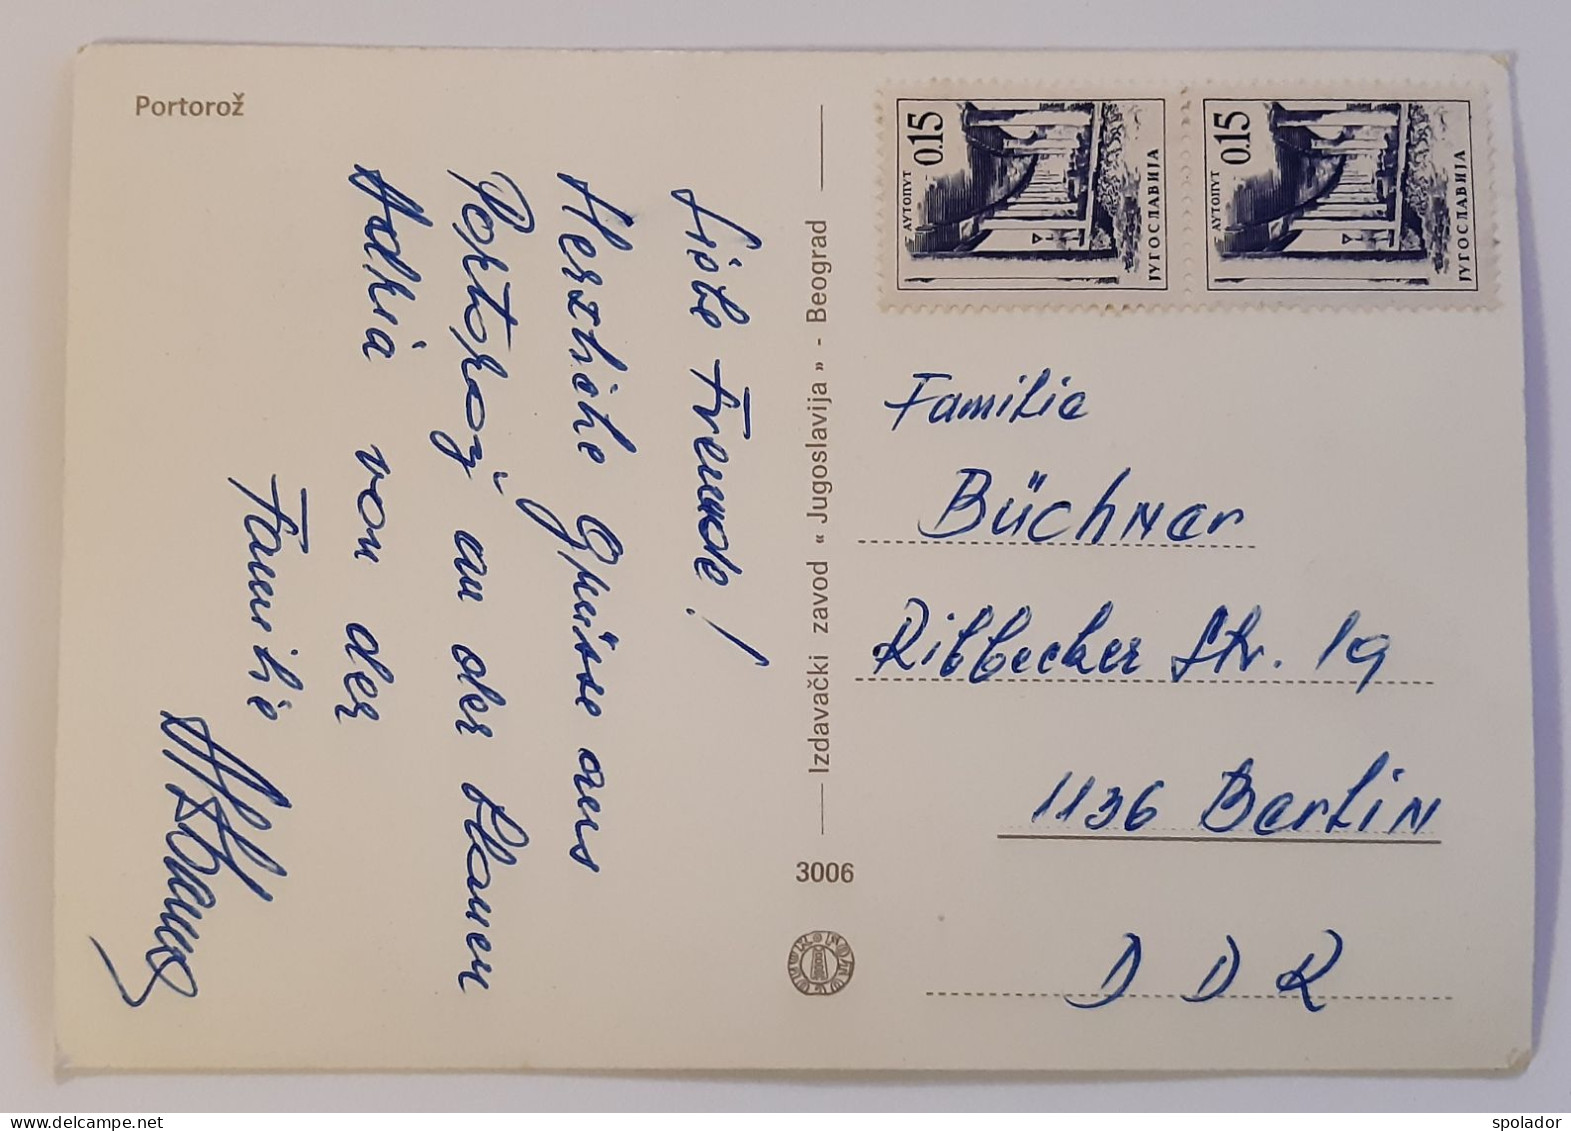 Portorož
Liebe Freunde!
Herzliche Grüsse aus
Portorož an der blauen
Adria von der
Familie
Izdavački zavod « Jugoslavija » - Beograd
3006
0.15
АУТОПУТ
ЈУГОСЛАВИЈА
0.15
АУТОПУТ
ЈУГОСЛАВИЈА
Familie
Büchner
Ribbecker Str. 19
1136 Berlin
DDR
www.delcampe.net
spolador